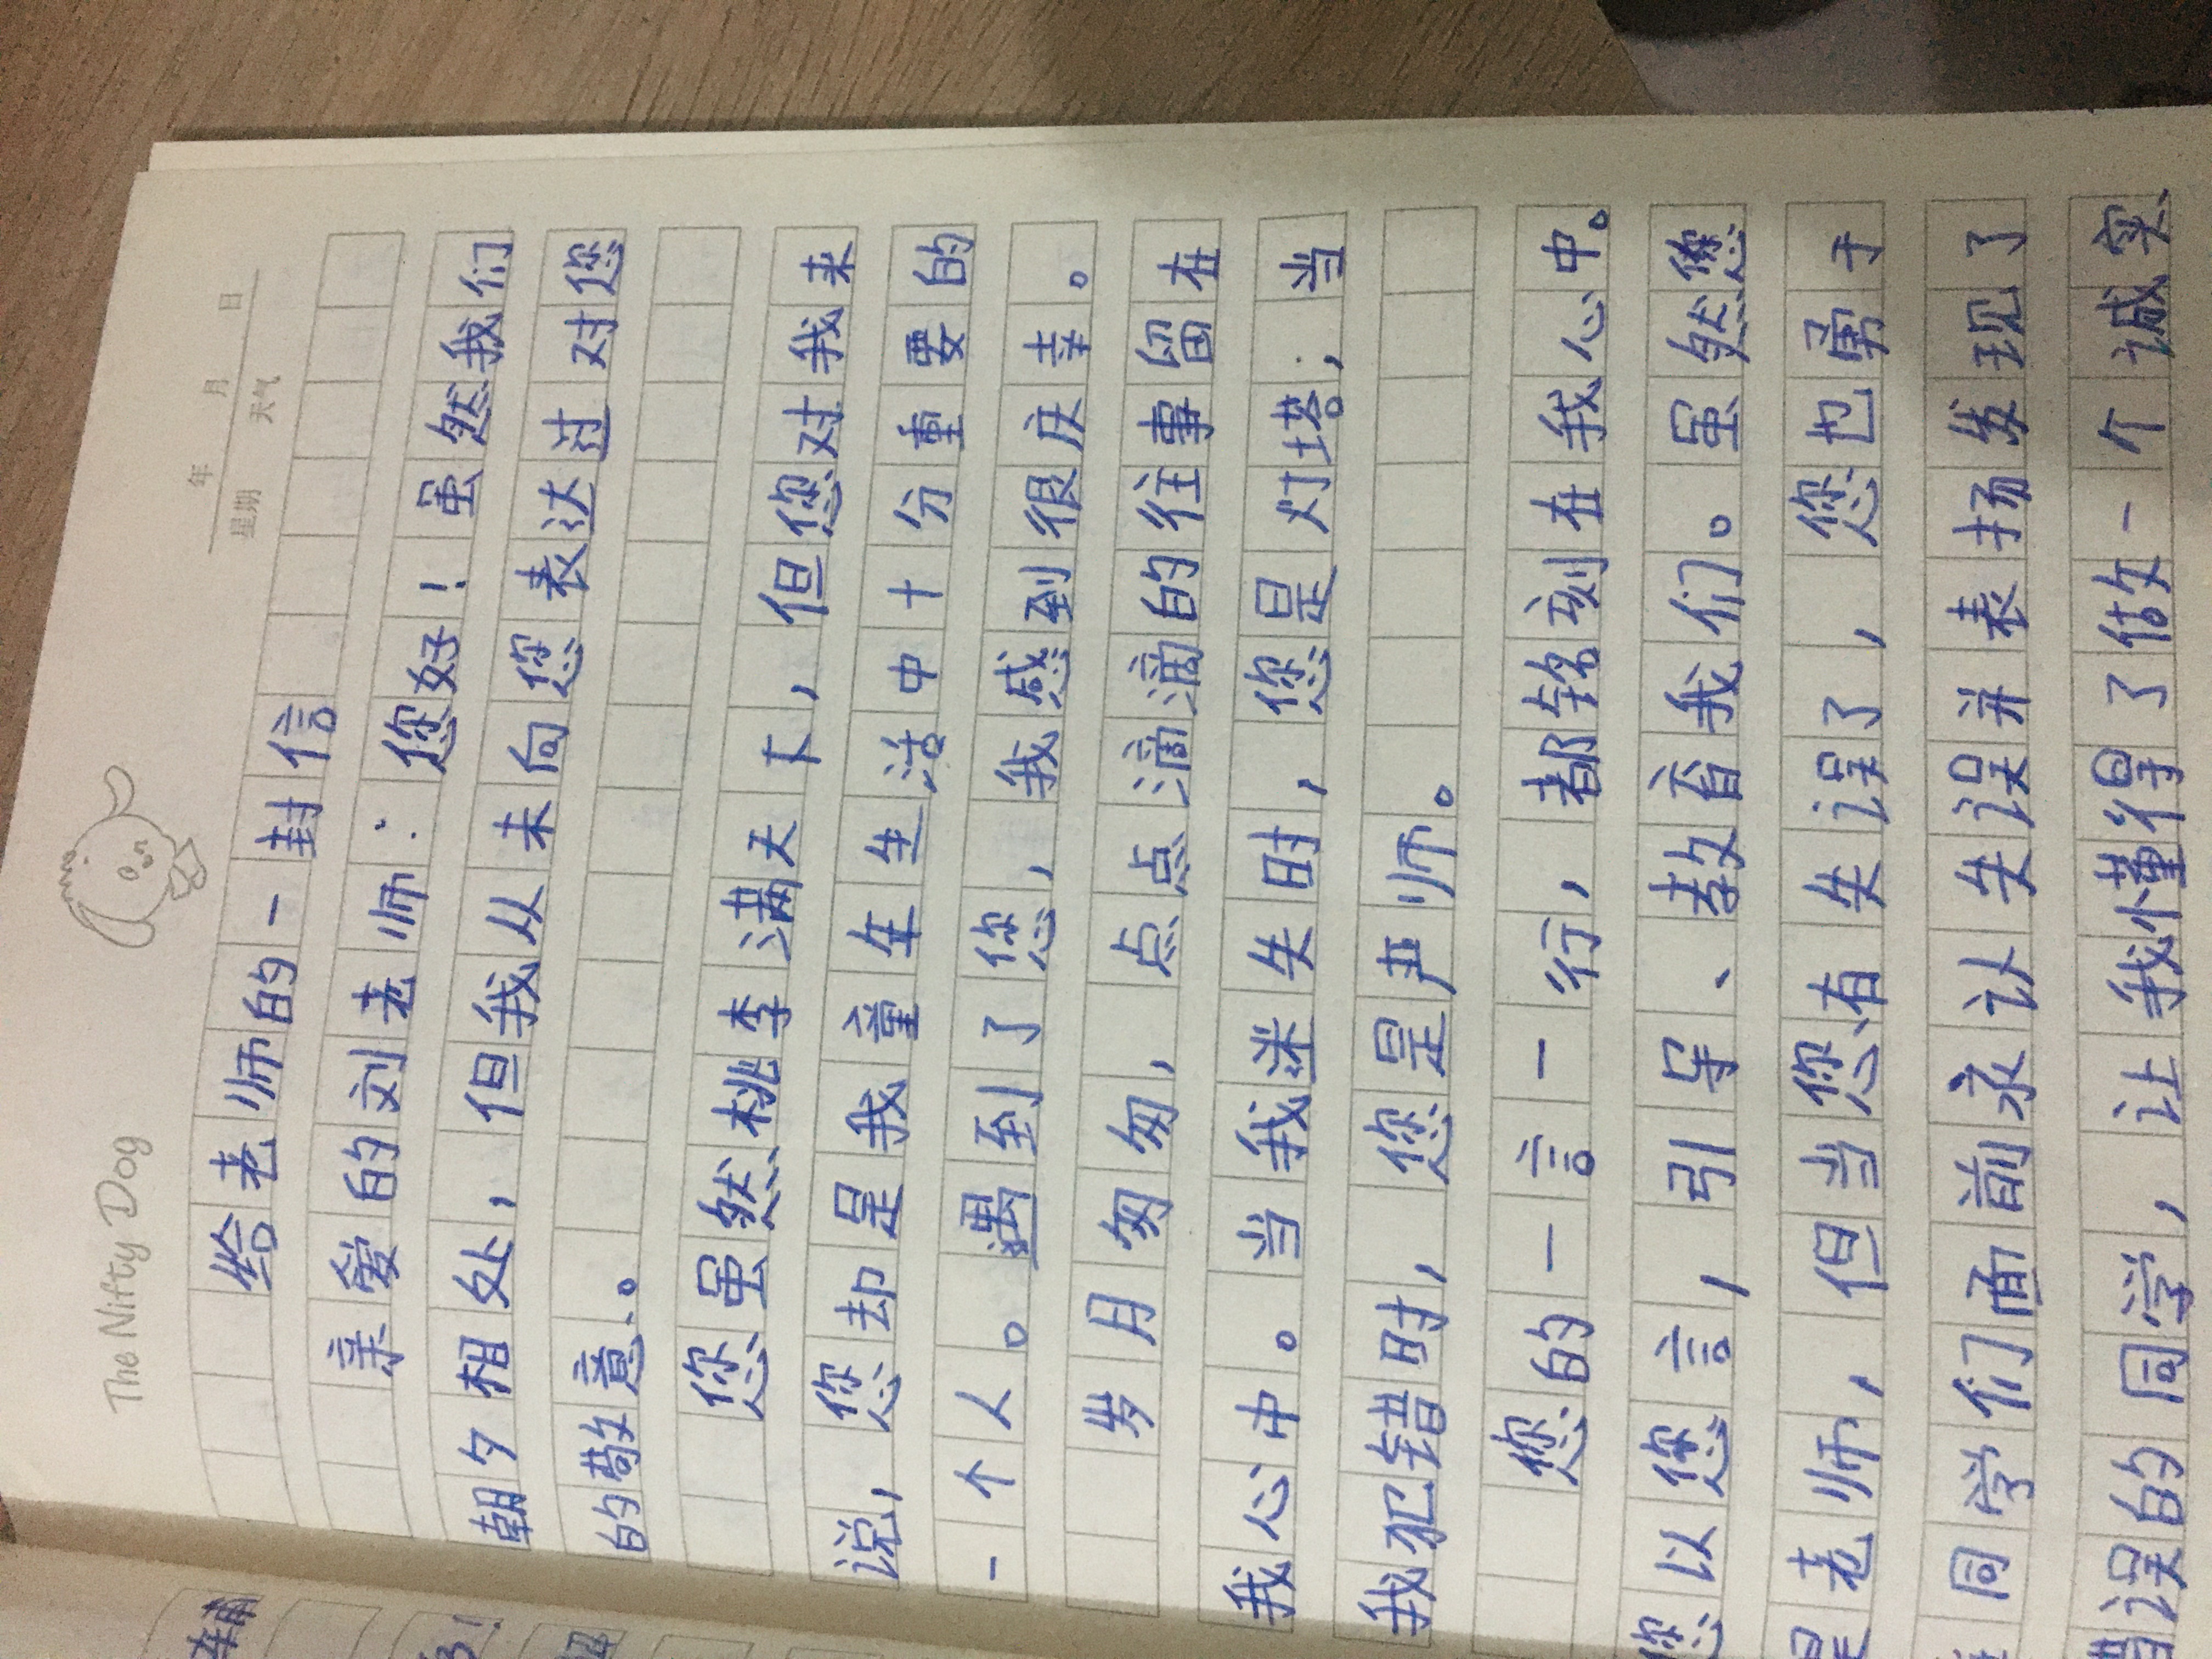 The Nifty Dog
年 月 日
星期 天气
给老师的一封信
亲爱的刘老师：您好！虽然我们
朝夕相处，但我从未向您表达过对您
的敬意。
您虽然桃李满天下，但您对我来
说，您却是我童年生活中十分重要的
一个人。遇到了您，我感到很庆幸。
岁月匆匆，点点滴滴的往事留在
我心中。当我迷失时，您是灯塔；当
我犯错时，您是严师。
您的一言一行，都铭刻在我心中。
您以您言，引导、教育我们。虽然您
是老师，但当您有失误了，您也勇于
在同学们面前承认失误并表扬发现了
错误的同学，让我懂得了做一个诚实、